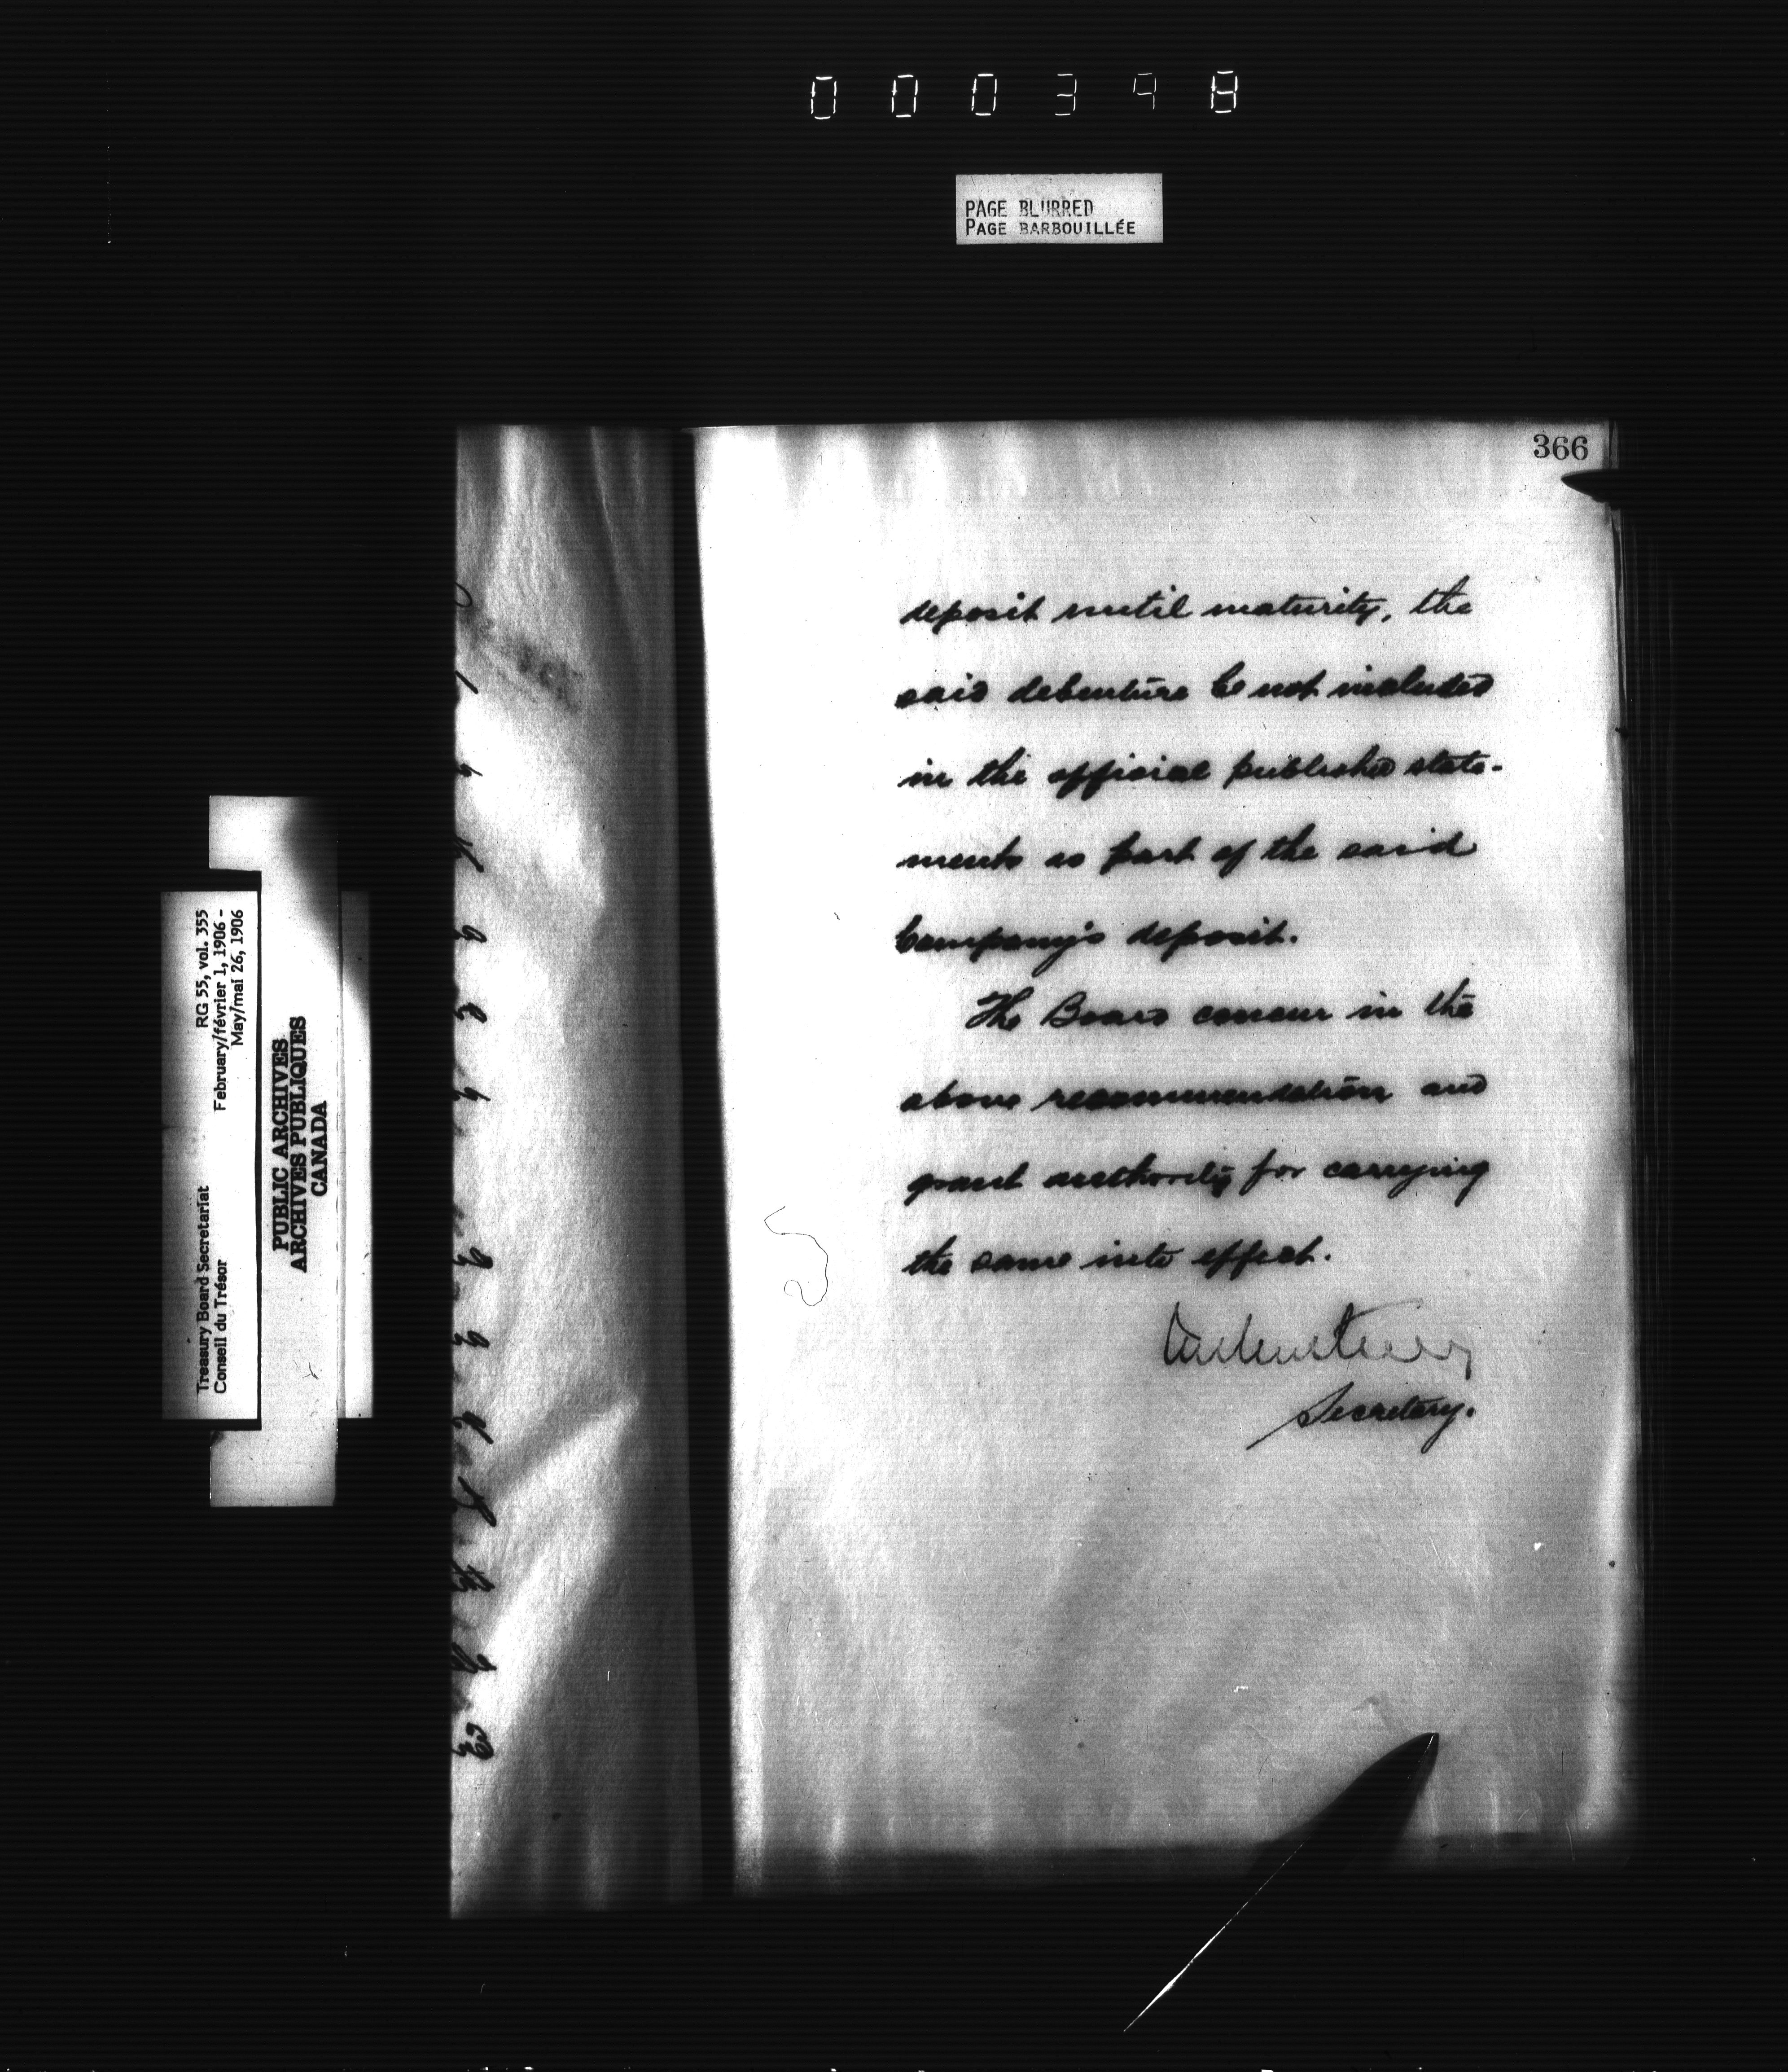 000398
PAGE BLURRED
PAGE BARBOUILLÉE
366
deposit until maturity, the
said debenture be not included
in the official published state-
ments as part of the said
Company's deposit.
The Board concur in the
above recommendation and
grant authority for carrying
the same into effect.
Secretary.
Treasury Board Secretariat
Conseil du Trésor
RG 55, vol. 355
February/février 1, 1906 -
May/mai 26, 1906
PUBLIC ARCHIVES
ARCHIVES PUBLIQUES
CANADA